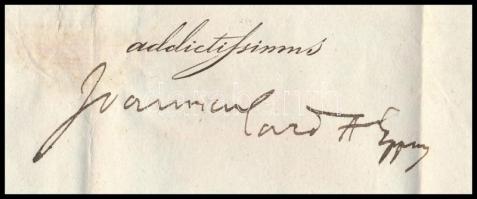 addictissimus
Joannes Card A Eppus